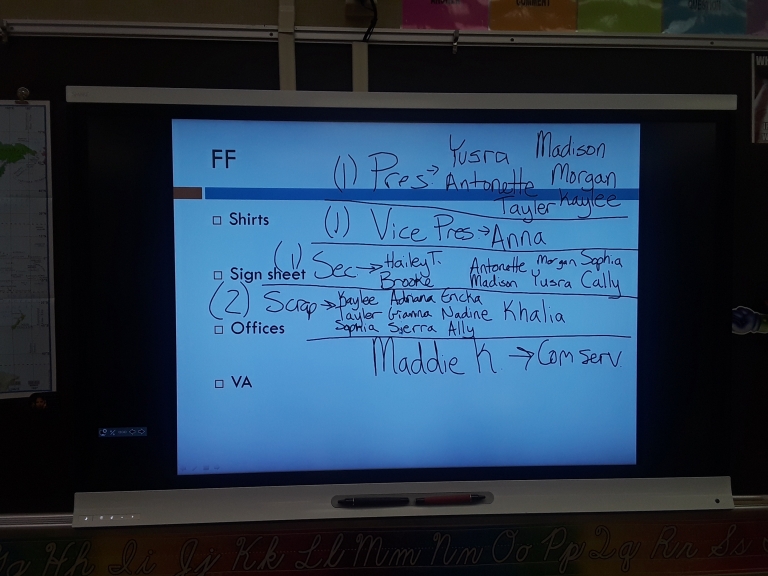 FF
(1) Pres → Yusra Madison
Antonette Morgan
Tayler Kaylee
□ Shirts
(1) Vice Pres → Anna
□ Sign sheet
(1) Sec → Hailey T. Antonette Morgan Sophia
Brooke Madison Yusra Cally
(2) Scrap → Kaylee Adriana Ericka
Tayler Gianna Nadine Khalia
Sophia Sierra Ally
□ Offices
Maddie K. → Com serv
□ VA
Hh Ii Jj Kk Ll Mm Nn Oo Pp Qq Rr Ss